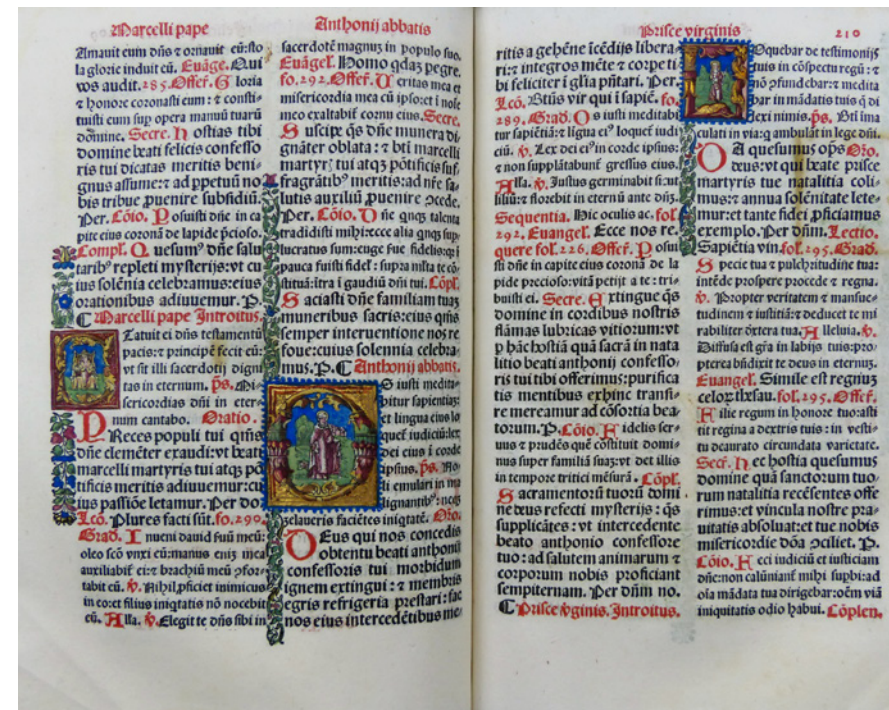 Marcelli pape
Amauit eum dñs ⁊ ornauit eū:sto
la glorie induit eū. Euāge. Qui
vos audit. 285. Offer̄. Gloria
⁊ honore coronasti eum: ⁊ consti-
tuisti eum sup opera manuū tuarū
domine. Secre. Hostias tibi
domine beati felicis confesso
ris tui dicatas meritis beni-
gnus assume:⁊ ad ppetuū no
bis tribue puenire subsidiū
Per. Cōio. Posuisti dñe in ca
pite eius coronā de lapide p̄cioso.
Compl. Quesum⁹ dñe salu
tarib⁹ repleti mysterijs:vt cu
ius solēnia celebramus:eius
orationibus adiuuemur. P.
Marcelli pape Introitus.
Statuit ei dñs testamentū
pacis:⁊ principē fecit eū:
vt sit illi sacerdotij digni
tas in eternum. p̄s. Mi-
sericordias dñi in eter-
num cantabo. Oratio.
PReces populi tui qūs
dñe clemēter exaudi:vt beati
marcelli martyris tui atqȝ pō
tificis meritis adiuuemur:cu
ius passiōe letamur. Per do
Lcō. Plures facti sūt. fo. 299.
Grad. Inueni dauid fuū meū:
oleo scō vnxi eū:manus eniȝ mea
auxiliabit̄ ei:⁊ brachiū meū ↄfor-
tabit eū. ℣. Nihil pficiet inimicus
in eo:et filius iniqtatis nō nocebit
eū. Alla. ℣. Elegit te dñs sibi in
Anthonij abbatis
sacerdotē magnuȝ in populo suo.
Euāgel. Homo qdaȝ pegre.
fo. 292. Offer̄. Veritas mea et
misericordia mea cū ipso:et ī noīe
meo exaltabit̄ cornu eius. Secre.
Suscipe qs dñe munera di-
gnāter oblata: ⁊ bti marcelli
martyrȝ tui atqȝ pōtificis suf
fragātib⁹ meritis:ad nr̄e sa-
lutis auxiliū puenire ↄcede.
Per. Cōio. Dñe qnqȝ talenta
tradidisti mihi:ecce alia qnqȝ sup
lucratus sum:euge fue fidelis:qȝ ī
pauca fuisti fidel᷒: supra mlta te cō
stituā:ītra ī gaudiū dñi tui. Cōpl.
Saciasti dñe familiam tuaȝ
muneribus sacris:eius qūs
semper interuentione nos re
foue:cuius solennia celebra-
mus. P. Anthonij abbatis.
OS iusti medita-
bitur sapientiaȝ:
et lingua eius lo
quet̄ iudiciū:lex
dei eius ī corde
ipsius. p̄s. No-
li emulari in ma
lignantib⁹:neqȝ
zelaueris faciētes iniqtatē. Oro.
DEus qui nos concedis
obtentu beati anthonij
confessoris tui morbidum
ignem extingui: ⁊ membris
egris refrigeria prestari: fac
nos eius intercedētibus me-
Prisce virginis 210
ritis a gehēne īcēdijs libera-
ri:⁊ integros mēte ⁊ corpe ti
bi feliciter ī glīa pn̄tari. Per.
Lcō. Btūs vir qui ī sapiē. fo.
289. Grad. Os iusti meditabi
tur sapiētiā:⁊ ligua ei⁹ loquet̄ iudi
ciū. ℣. Lex dei ei⁹ in corde ipsius:
⁊ non supplātabunt̄ gressus eius.
Alla. ℣. Justus germinabit sic̄ut
liliū:⁊ florebit in eternū ante dñȝ.
Sequentia. Hic oculis ac. fol.
292. Euangel. Ecce nos re.
quere fol. 226. Offer̄. Posui
sti dñe in capite eius coronā de la
pide precioso:vitā petijt a te: tri-
buisti ei. Secre. Extingue qs
domine in cordibus nostris
flāmas lubricas vitiorum:vt
p hāc hostiā quā sacrā in nata
litio beati anthonij confesso-
ris tui tibi offerimus:purifica
tis mentibus exhinc transi-
re mereamur ad cōsortia bea-
torum. P. Cōio. Fidelis ser-
uus ⁊ prudēs quē cōstituit domi-
nus super familiā suaȝ:vt det illis
in tempore tritici mēsurā. Cōpl.
Sacramentorū tuorū domi
ne deus refecti mysterijs: qs
supplicātes: vt intercedente
beato anthonio confessore
tuo: ad salutem animarum ⁊
corporum nobis proficiant
sempiternam. Per dñm no.
Prisce ℣ginis. Introitus.
LOquebar de testimonijs
tuis in cōspectu regū: ⁊
nō ↄfundebar:⁊ medita
bar in mādatis tuis q̄ di
lexi nimis. p̄s. Bti īma
culati in via:q ambulāt in lege dñi.
DA quesumus ops Oro.
deus:vt qui beate prisce
martyris tue natalitia coli-
mus:⁊ annua solēnitate lete-
mur:et tante fidei pficiamus
exemplo. Per dñm. Lectio.
Sapiētia vin. fol. 295. Grad.
Specie tua ⁊ pulchritudine tua:
intēde prospere procede ⁊ regna.
℣. Propter veritatem ⁊ mansue-
tudinem ⁊ iustitiā:⁊ deducet te mi
rabiliter dextera tua. Alleluia. ℣.
Diffusa est gr̄a in labijs tuis:pro-
pterea bn̄dixit te deus in eternuȝ.
Euangel. Simile est regnuȝ
celoȝ thesau. fol. 295. Offer̄.
Filie regum in honore tuo:asti
tit regina a dextris tuis: in vesti-
tu deaurato circundata varietate.
Secr̄. Hec hostia quesumus
domine quā sanctorum tuo-
rum natalitia recēsentes offe
rimus:et vincula nostre pra-
uitatis absoluat:et tue nobis
misericordie dōa ↄciliet. P.
Cōio. Feci iudiciū et iusticiam
dñe:non calūniant̄ mihi supbi:ad
oīa mādata tua dirigebar:oēm viā
iniquitatis odio habui. Cōplen.